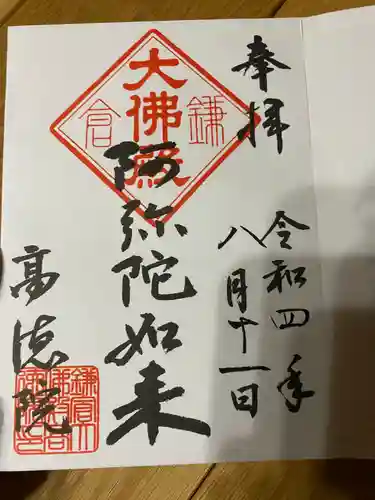 奉拝
令和四年
八月十一日
大佛殿
鎌倉
阿弥陀如来
高徳院